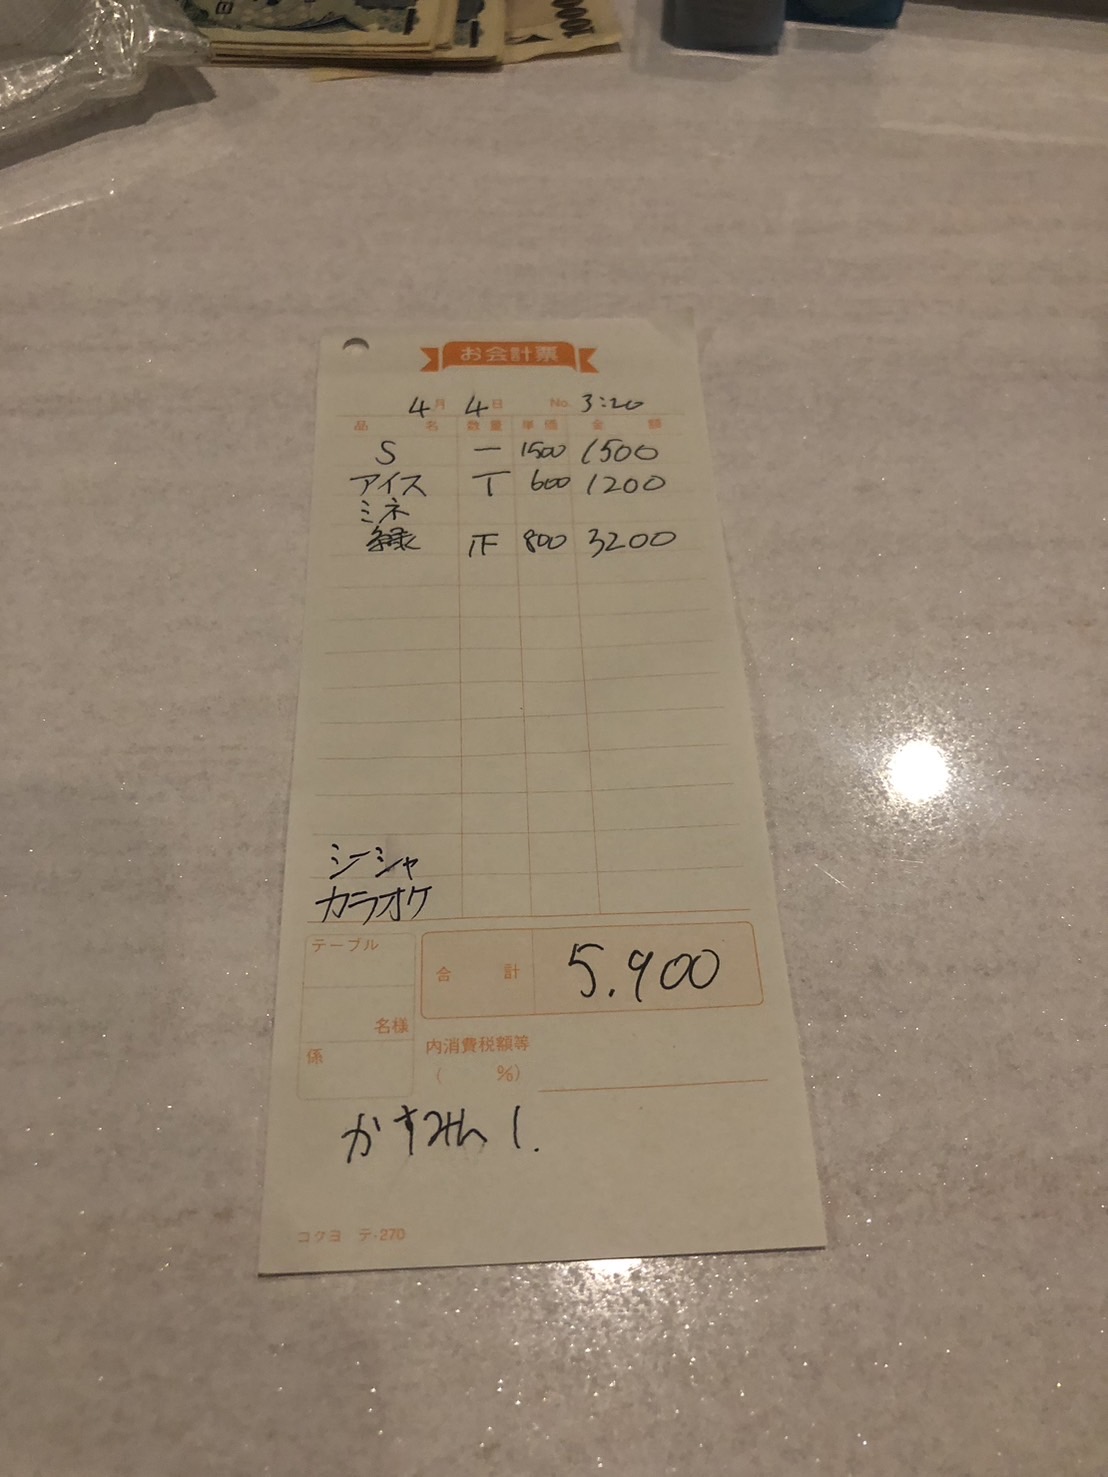 10000
お会計票
4月 4日 No. 3:20
品名 数量 単価 金額
S 一 1500 1500
アイス T 600 1200
ミネ
緑 正 800 3200
シーシャ
カラオケ
テーブル
合計 5.900
名様
係
内消費税額等
( %)
かすみん 1.
コクヨ テ-270